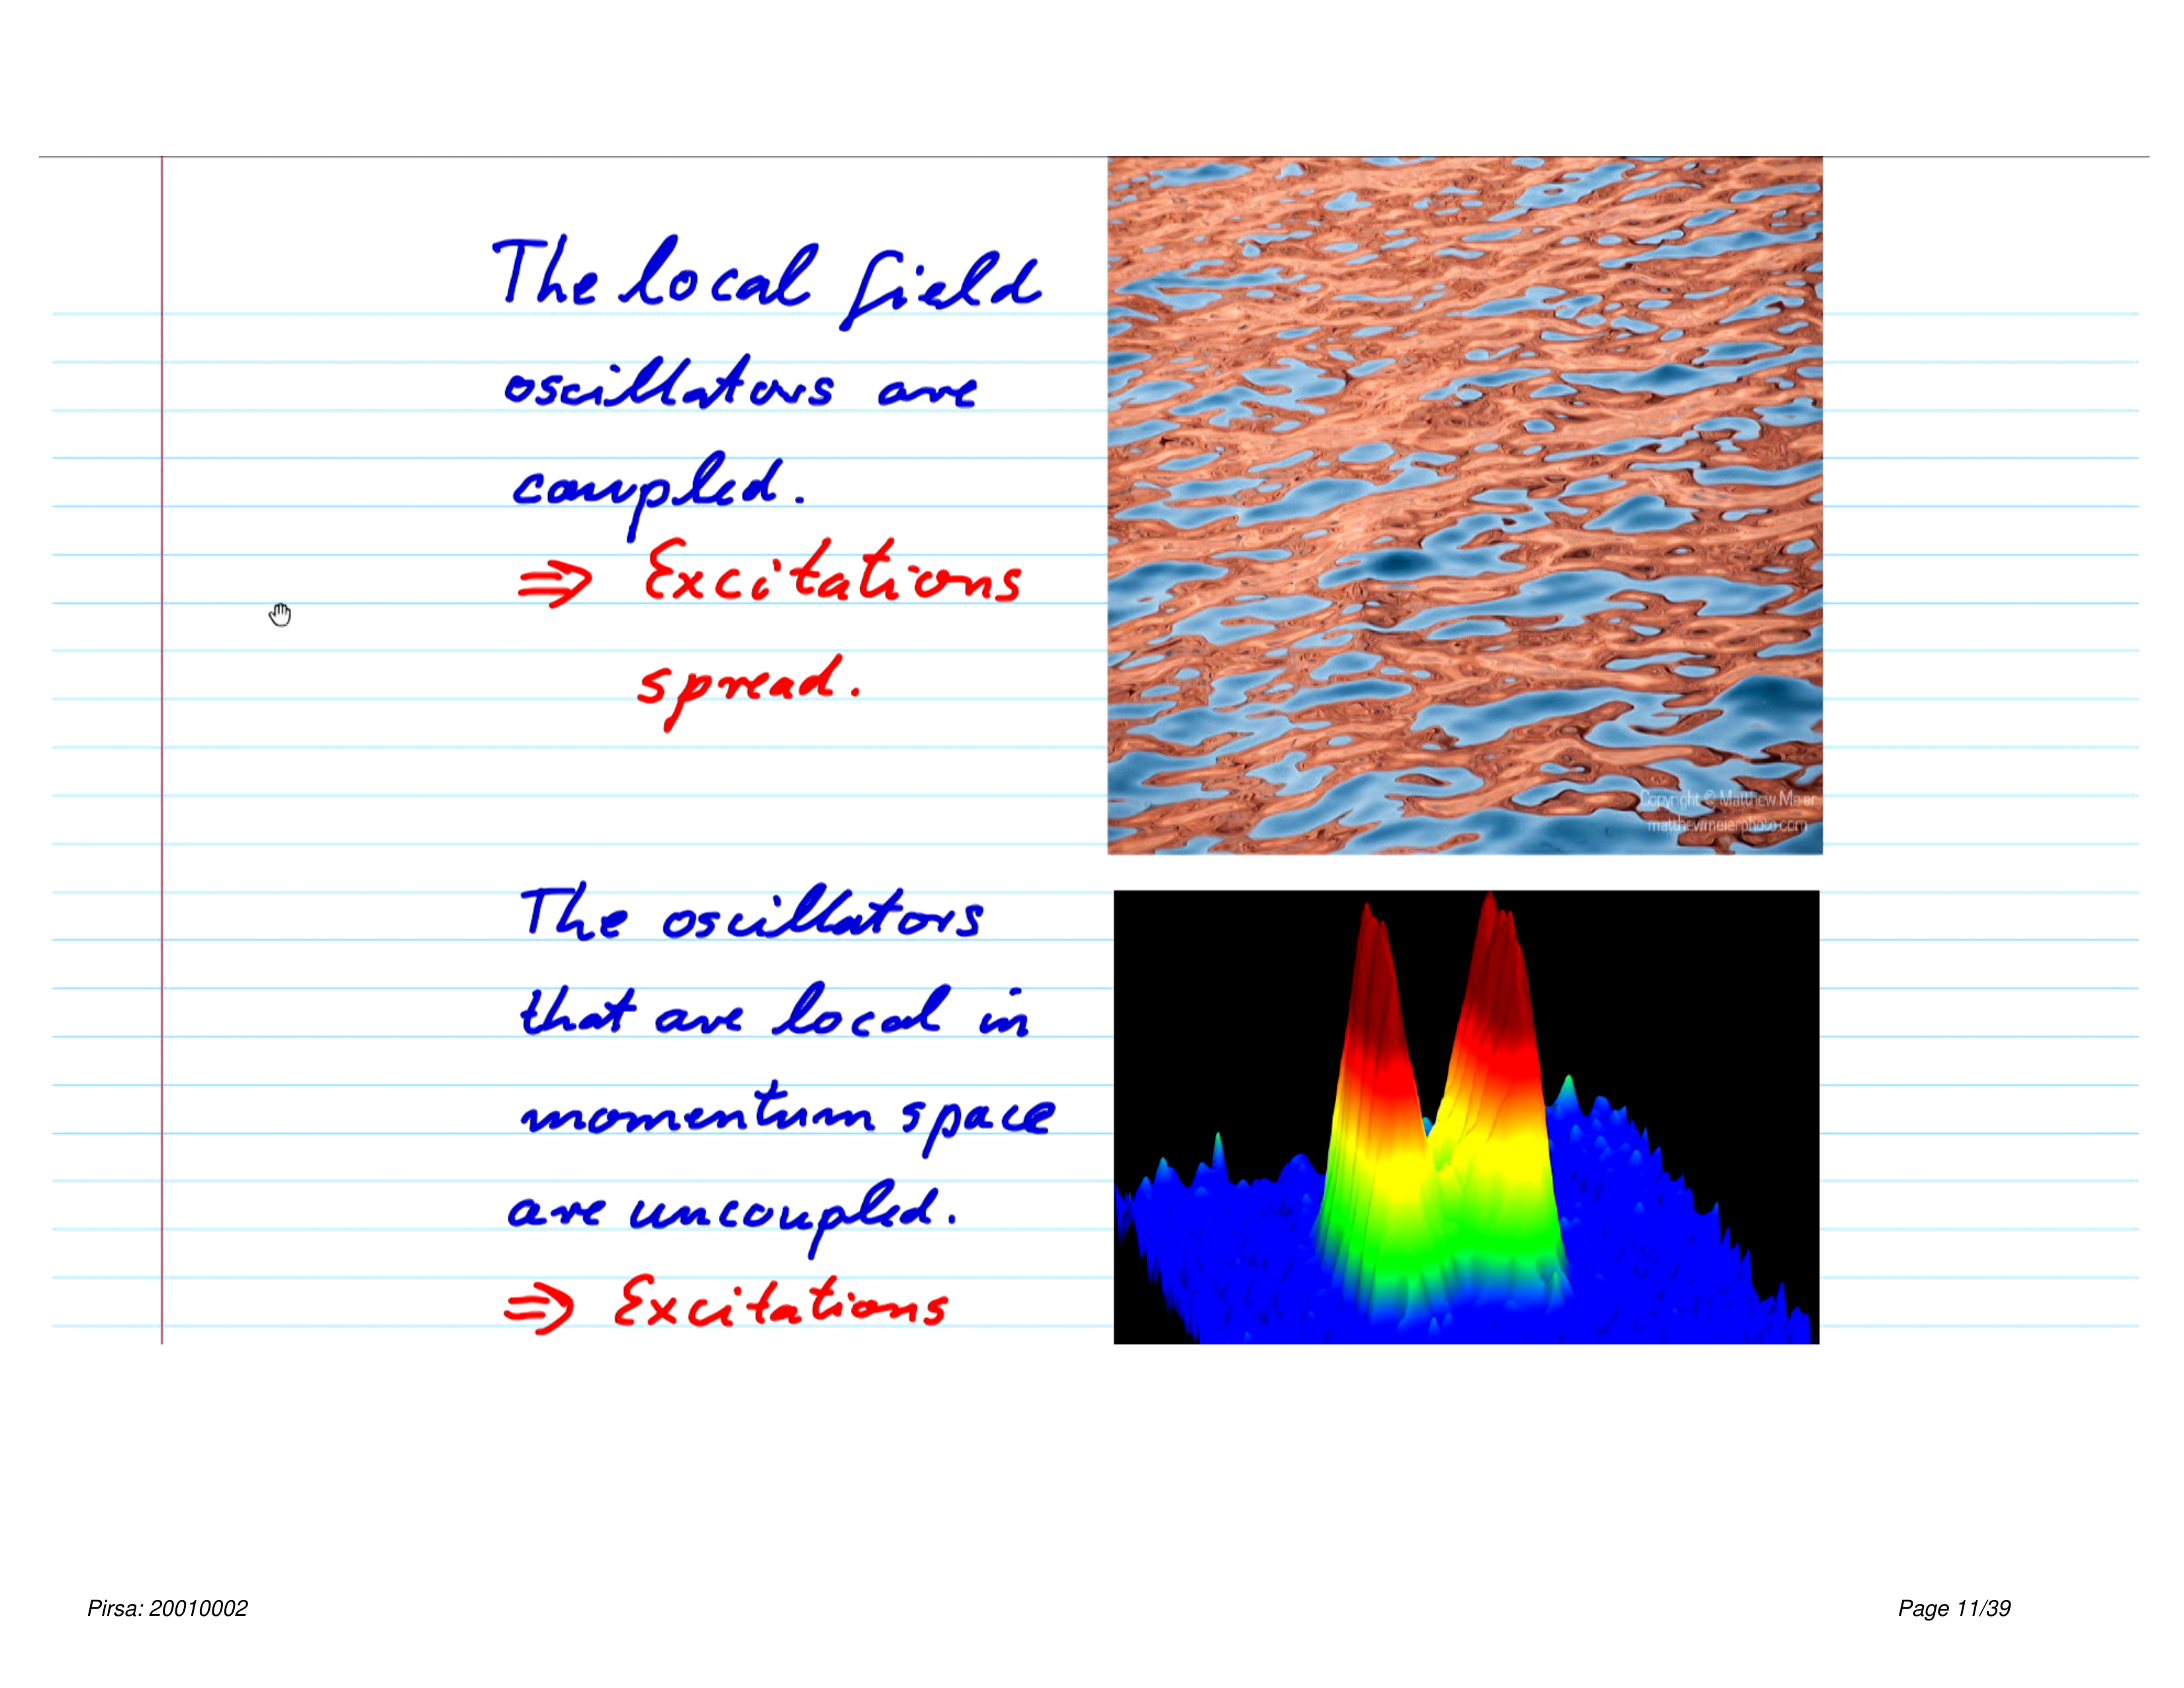 The local field
oscillators are
coupled.
⇒ Excitations
spread.
Copyright © Matthew Meier
matthewmeierphoto.com
The oscillators
that are local in
momentum space
are uncoupled.
⇒ Excitations
Pirsa: 20010002
Page 11/39